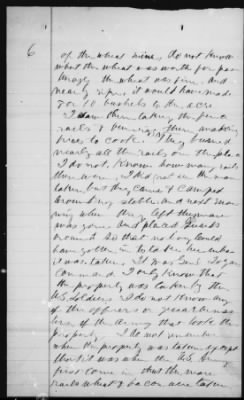 6
of the wheat mine, do not know
what the wheat was worth per
the wheat was fine and
nearly ripe, it would have made
7 or 10 bushels to the acre
I saw them taking the fence
rails & burning them making
fires to cook. They burned
nearly all the rails on the place
I do not know how many rails
there were, I did not see the corn
taken but they came & camped
around my stable and next mor
ning when they left the corn
was gone and placed guards
around so that no body could
have gotten in to take it when
it was taken. It was Genl Logan
Command I only know that
the property was taken by the
U.S. Soldiers I do not know any
of the officers or quartermas
ters of the Army that took the
property I do not remember
when the property was taken except
that it was when the U.S. Army
first come in about the
rails wheat & bacon were taken